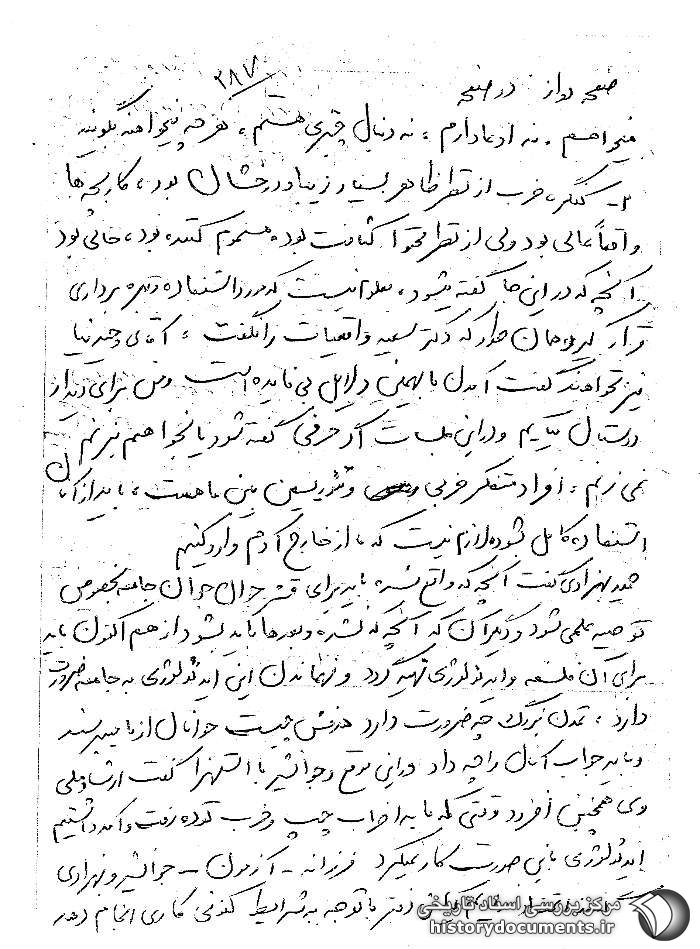 ۲۸۷
صفحه دواز در صفحه
نمیخواهیم . نه ادعا دارم ، نه دنبال چیزی هستم ، هر چه میخواهند بگویند
۲- کنگره حزب از نظر ظاهر بسیار زیبا و درخشان بود ، کاریچه ها
واقعاً عالی بود ولی از نظر محتوا کثافت بود، مسموم کننده بود، خالی بود
آنچه که در این جا گفته میشود ، معلوم نیست که مورد استفاده و بهره برداری
قرار گیرد همان طوری که دکتر سعید واقعیات را نگفت ، آقای وحیدنیا
نیز نخواهند گفت آمدن ما بهمین دلایل بی فایده است و من برای دیدار
دوستان میآیم و در این جلسات اگر حرفی گفته شود یا نخواهم بزنم
نمی زنم ، افراد متفکر حزبی و تئوریسین بین ما هست ، باید از آنان
استفاده کامل بشود، لازم نیست که ما از خارج آدم وارد کنیم
بهزادی گفت آنچه که واقع شده باید برای قشر جوان جامعه بخصوص
توصیه علمی شود و دیگر آن که آنچه که نشده و بعدها باید بشود از هم اکنون باید
برای آن فلسفه و ایدئولوژی تهیه گردد و فهماندن این ایدئولوژی به جامعه ضرورت
دارد ، تمدن بزرگ چه ضرورت دارد هدفش چیست جوانان از ما میپرسند
و باید جواب آنان را چه داد در این موقع جوانشیر با استهزا گفت ارشاد ملی
وی همچنین افزود وقتی که ما به احزاب چپ و حزب توده رفت و آمد داشتیم
ایدئولوژی باین صورت کار نمیکرد فرزانه - آزمون - جوانشیر و بهزادی
با توجه به شرایط کنونی کاری انجام دهد
مرکز بررسی اسناد تاریخی
historydocuments.ir